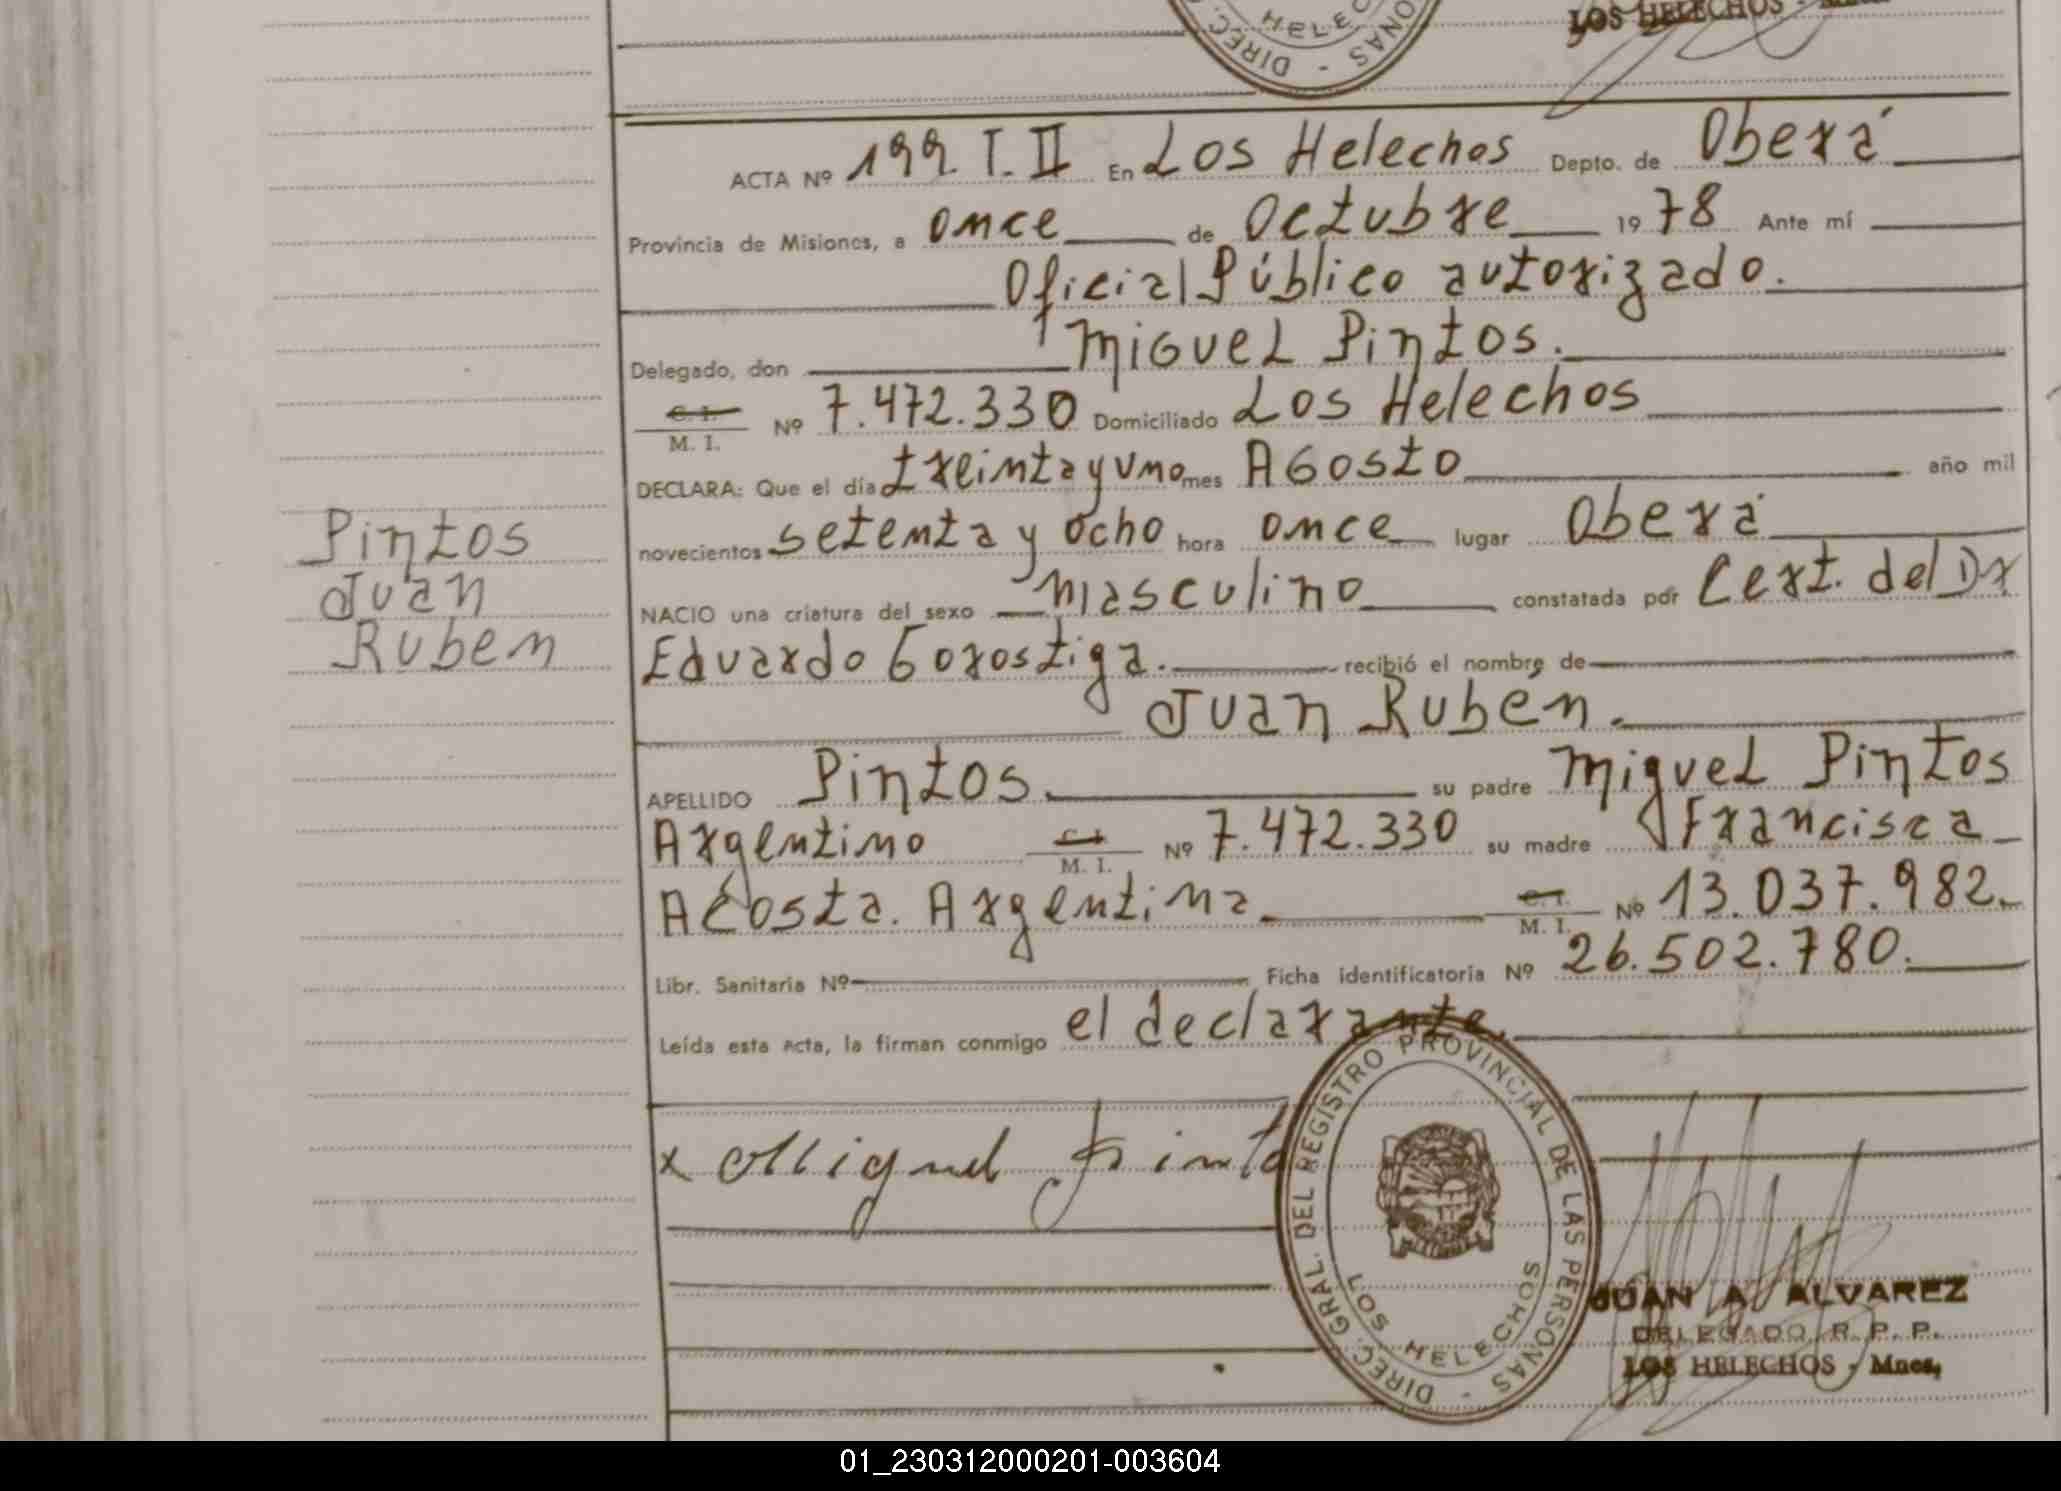 HELEC
DIREC.
ONAS -
LOS HELECHOS -
ACTA Nº 199. T. II En Los Helechos Depto. de Oberá
Provincia de Misiones, a once de Octubre 1978 Ante mí
Oficial Público autorizado.
Delegado, don Miguel Pintos.
C. I.
M. I. Nº 7.472.330 Domiciliado Los Helechos
DECLARA: Que el día treinta y uno mes Agosto año mil
novecientos setenta y ocho hora once lugar Oberá
NACIO una criatura del sexo masculino constatada por Cert. del Dr
Eduardo Gorostiga. recibió el nombre de
Juan Ruben.
Pintos
Juan
Ruben
APELLIDO Pintos. su padre Miguel Pintos
Argentino C. I.
M. I. Nº 7.472.330 su madre Francisca
Acosta. Argentina C. I.
M. I. Nº 13.037.982.
Libr. Sanitaria Nº Ficha identificatoria Nº 26.502.780.
Leída esta acta, la firman conmigo el declarante.
x Miguel Pinto
DIREC. GRAL. DEL REGISTRO PROVINCIAL DE LAS PERSONAS -
LOS HELECHOS
JUAN A. ALVAREZ
DELEGADO R. P. P.
LOS HELECHOS - Mnes.
01_230312000201-003604